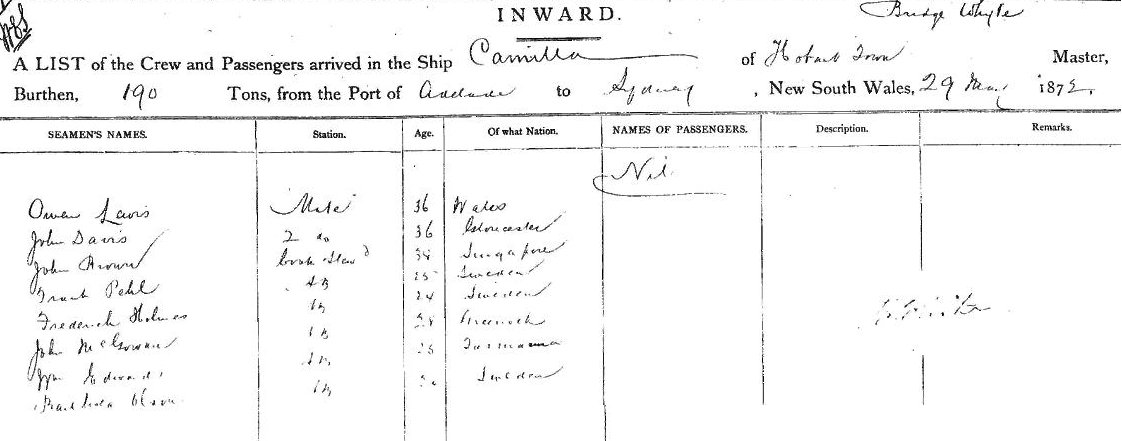 INWARD.
Bridge Whyte
A LIST of the Crew and Passengers arrived in the Ship Camilla of Hobart Town Master,
Burthen, 190 Tons, from the Port of Adelaide to Sydney, New South Wales, 29 May 1872,
SEAMEN'S NAMES. Station. Age. Of what Nation. NAMES OF PASSENGERS. Description. Remarks.
Nil
Owen Lewis Mate 36 Wales
John Davis 2 do 36 Gloucester
John Brown Cook Stewd Singapore
Frank Pehl AB 25 Sweden
Frederick Holmes AB 24 Sweden
John McGowan AB 28 Greenock
Wm Edwards AB Tasmania
Olson AB Sweden